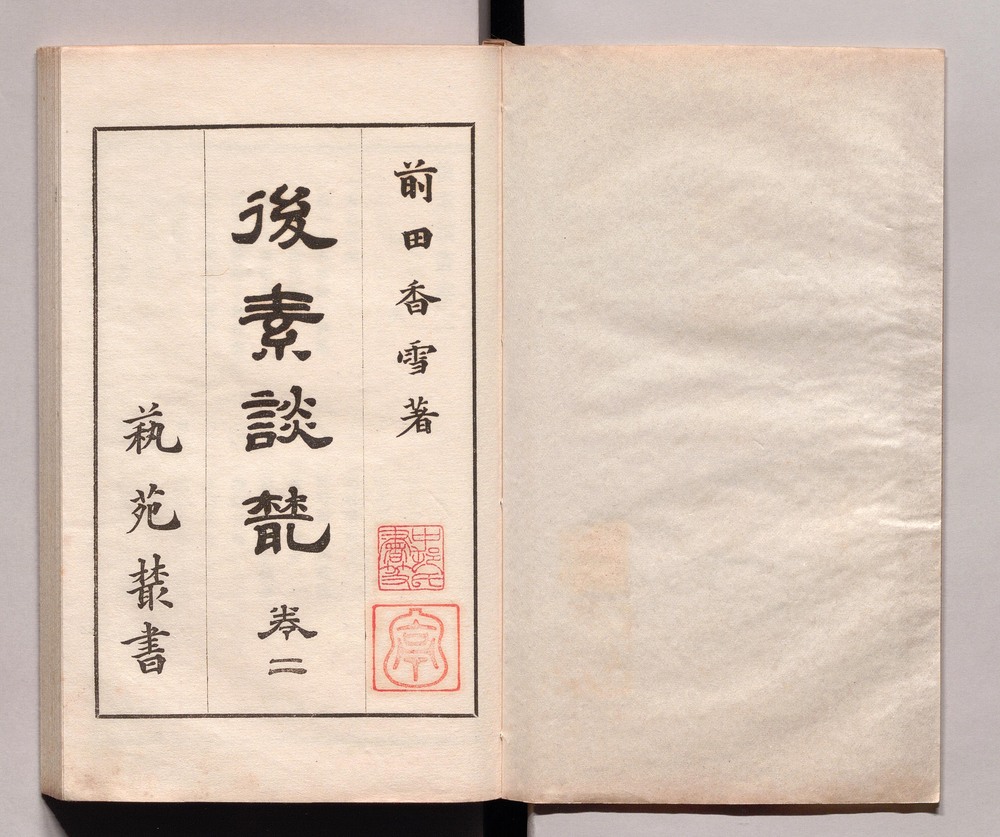 前田香雪著
後素談叢 卷二
蓺苑叢書